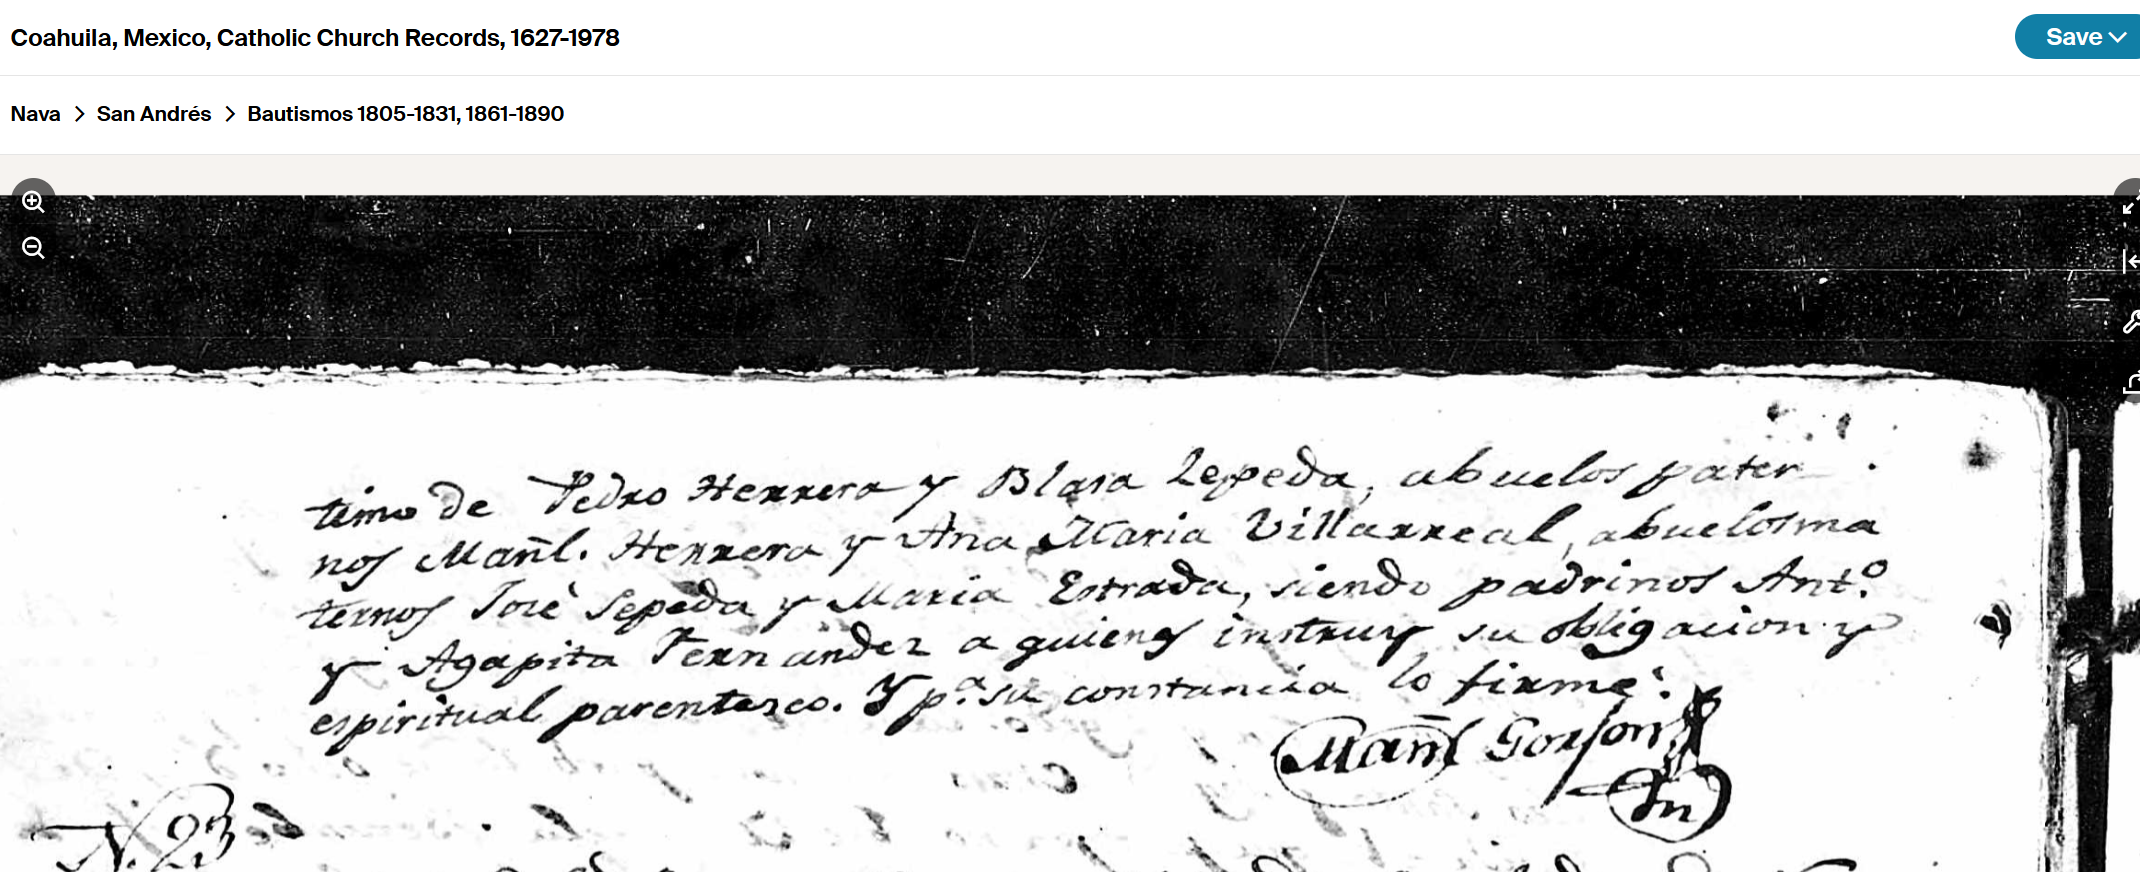 Coahuila, Mexico, Catholic Church Records, 1627-1978
Save
Nava > San Andrés > Bautismos 1805-1831, 1861-1890
timo de Pedro Herrera y Blasa Zepeda, abuelos pater
nos Mañl. Herrera y Ana Maria Villarreal, abuelos ma
ternos José Sepeda y Maria Estrada, siendo padrinos Ant.º
y Agapita Fernandez a quienes instruy su obligacion y
espiritual parentesco. Y p.ª su constancia lo firmé.
Mañl
N. 23